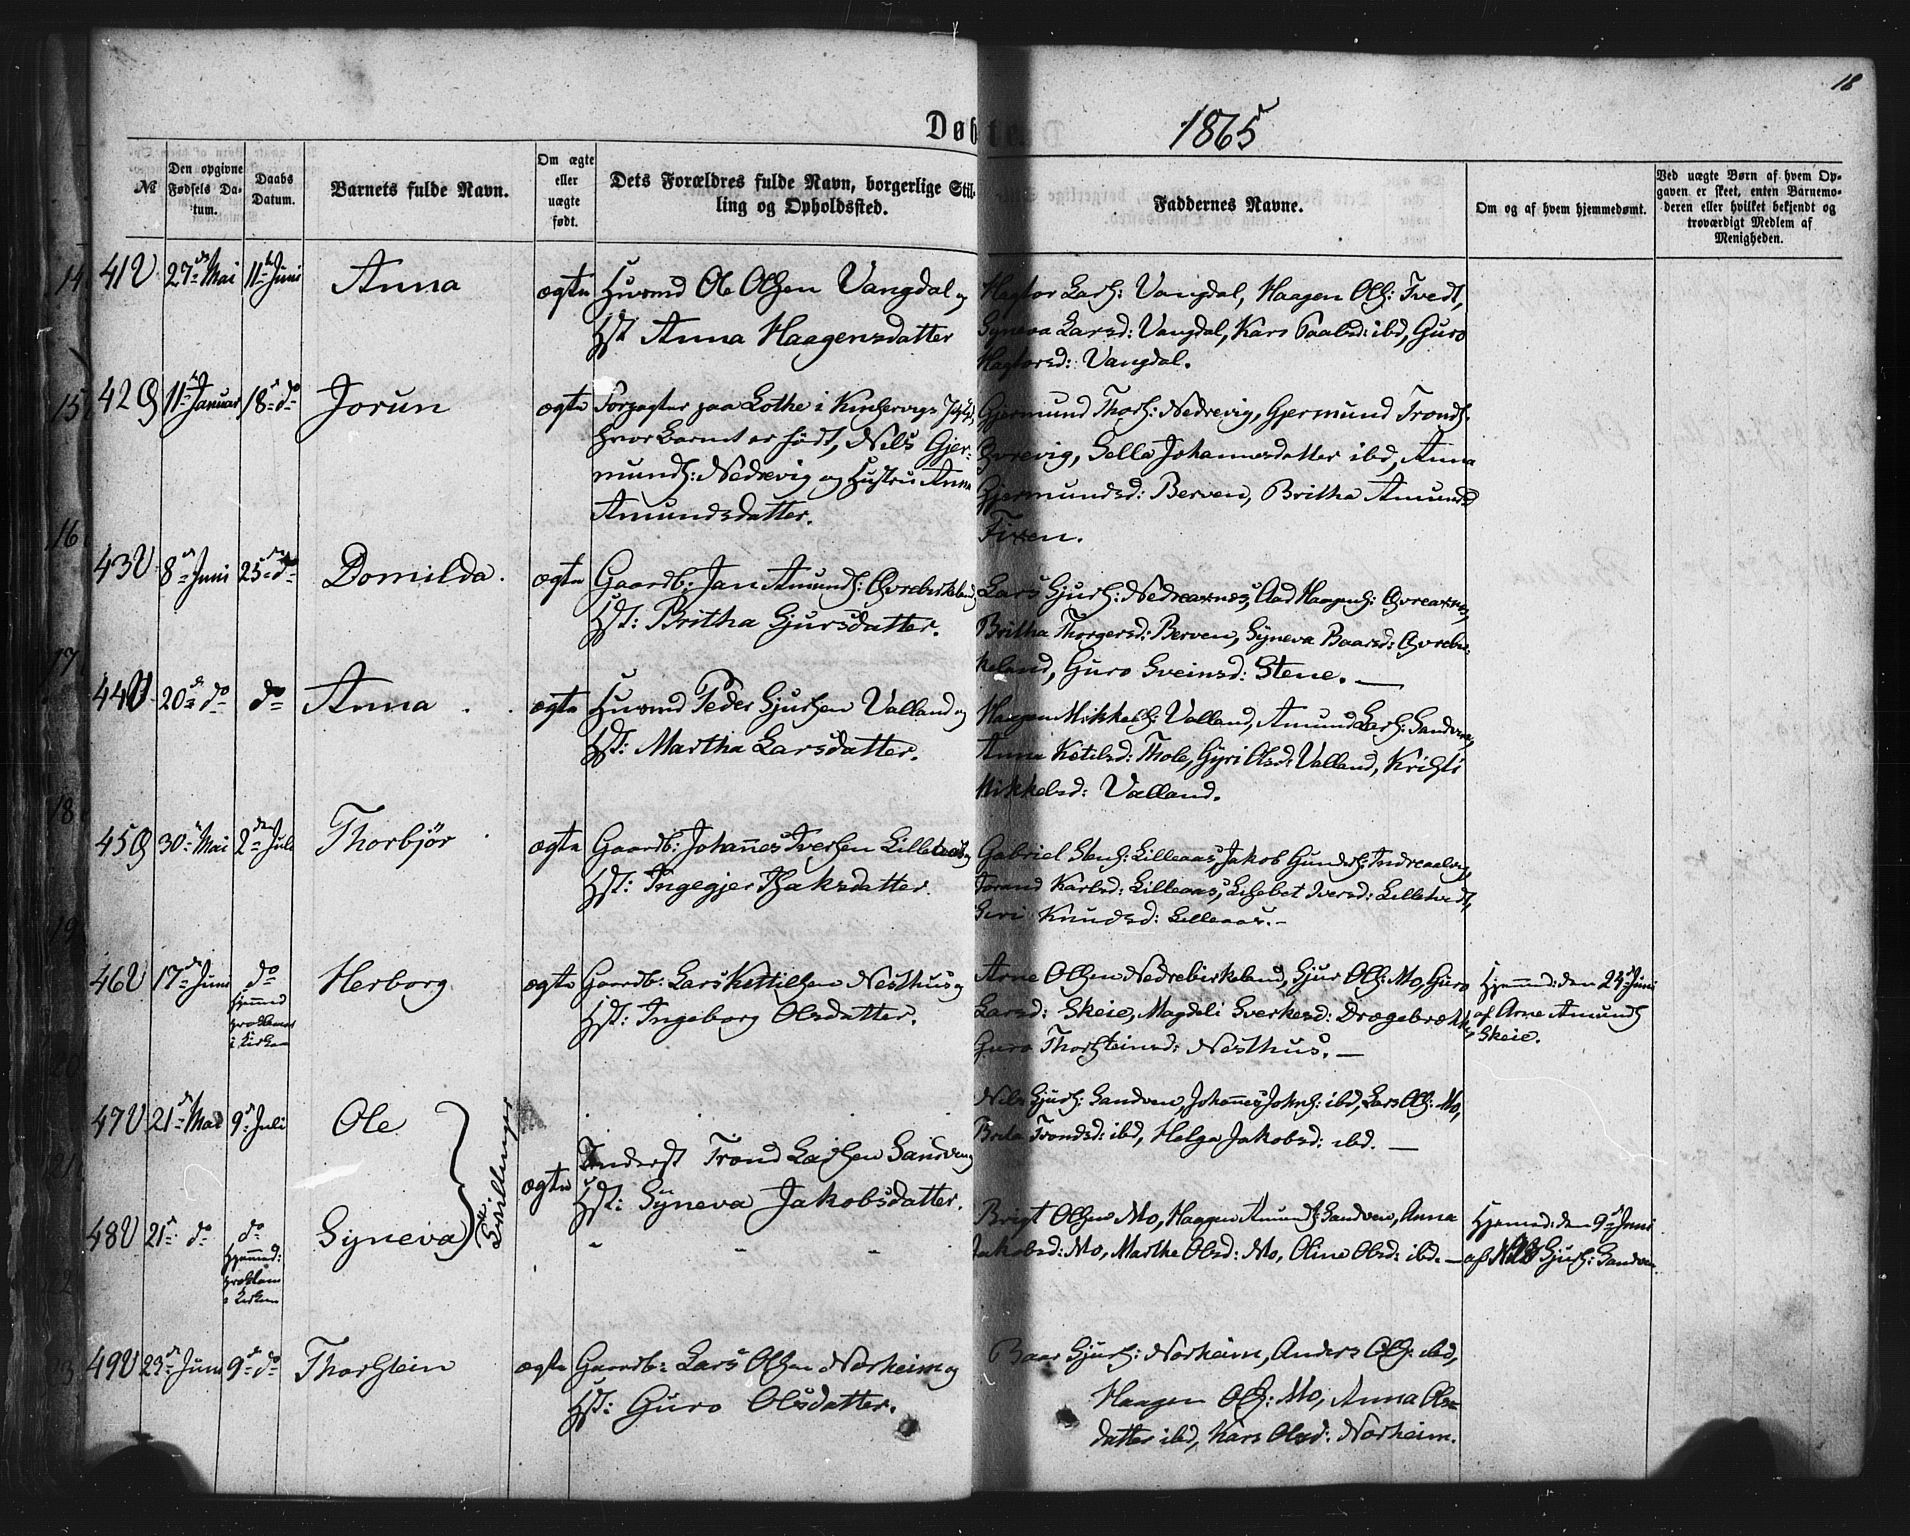 18
Døbte 1865
№
Den opgivne Fødsels Da-
tum.
Daabs
Datum.
Barnets fulde Navn.
Om ægte
eller
uægte
født.
Dets Forældres fulde Navn, borgerlige Stil-
ling og Opholdssted.
Faddernes Navne.
Om og af hvem hjemmedømt.
Ved uægte Børn af hvem Op-
gaven er skeet, enten Barnemo-
deren eller hvilket bekjendt og
troværdigt Medlem af
Menigheden.
41 U 27de Mai 11te Juni Anna ægte Husmd Ole Olsen Vangdal og
Hst Anna Haagensdatter
Hagtor Lars: Vangdal, Haagen Ols: Tvedt,
Syneva Larsd: Vangdal, Kari Paalsd: ibd, Guro
Hagtorsd: Vangdal.
42 Ø 11te Januar 18de do Jorun ægte Forpagter paa Lothe i Kinservigs
hvor Barnet er født, Nils Gjer-
munds: Nedrevig og Hustru Anna
Amundsdatter.
Gjermund Thors: Nedrevig, Gjermund Tronds:
Øvrevig, Sella Johannesdatter ibd, Anna
Gjermundsd: Berven, Britha Amundsd
Fixen.
43 U 8de Juni 25de do Domilda. ægte Gaardb: Jan Amunds: Øvrebirkeland
Hst: Britha Gjursdatter.
Lars Gjurs: Nedreaxnes, Aad Haagens: Øvreaxnes,
Britha Thorgersd: Berven, Syneva Baarsd: Øvrebir-
keland, Guro Sveinsd: Stene. —
44 U 20de do do Anna ægte Husmd Peder Gjursen Valland og
Hst: Martha Larsdatter.
Haagen Mikkels: Valland, Amund Lars: Sandven,
Anna Ketilsd: Thole, Gyri Olsd: Valland, Kristi
Mikkelsd: Valland.
45 Ø 30te Mai 2den Juli Thorbjør ægte Gaardb: Johannes Iversen Lilleaas og
Hst: Ingegjer Isaksdatter.
Gabriel Stens: Lilleaas, Jakob Gunders:
Torand Karlsd: Lilleaas, Lisabet Iversd: Lilletvedt,
Siri Knudsd: Lilleaas. —
46 U 17de Juni do Herborg ægte Gaardb: Lars Kettilsen Nesthus og
Hjemmed
proklamert
i Kirken
Hst: Ingeborg Olsdatter.
Arne Olsen Nedrebirkeland, Gjur Ols: Mo, Guro
Larsd: Skeie, Magdeli Sverkesd: Drægebrække,
Guro Thorsteinsd: Nesthus. —
Hjemmed: den 24de Juni
af Arne Amunds
Skeie.
47 U 21de Mai 9de Juli Ole
Tvillinger
ægte Inderst Trond Larsen Sandven og
Hst: Syneva Jakobsdatter.
Nils Gjurs: Sandven, Johannes Johns: ibd, Lars Ols: Mo,
Brita Trondsd: ibd, Helga Jakobsd: ibd. —
48 U 21de do do Syneva
Hjemmed:
proklam
i Kirken
Brigt Olsen Mo, Haagen Amunds: Sandven, Anna
Jakobsd: Mo, Marthe Olsd: Mo, Oline Olsd: ibd. —
Hjemmed: den 9de Juni
af Nils Gjurs: Sandven.
49 U 23de Juni 9de do Thorstein ægte Gaardb: Lars Olsen Norheim og
Hst: Guro Olsdatter.
Baar Gjurs: Norheim, Anders Ols: ibd,
Haagen Ols: Mo, Anna Ols-
datter ibd, Kari Olsd: Norheim.